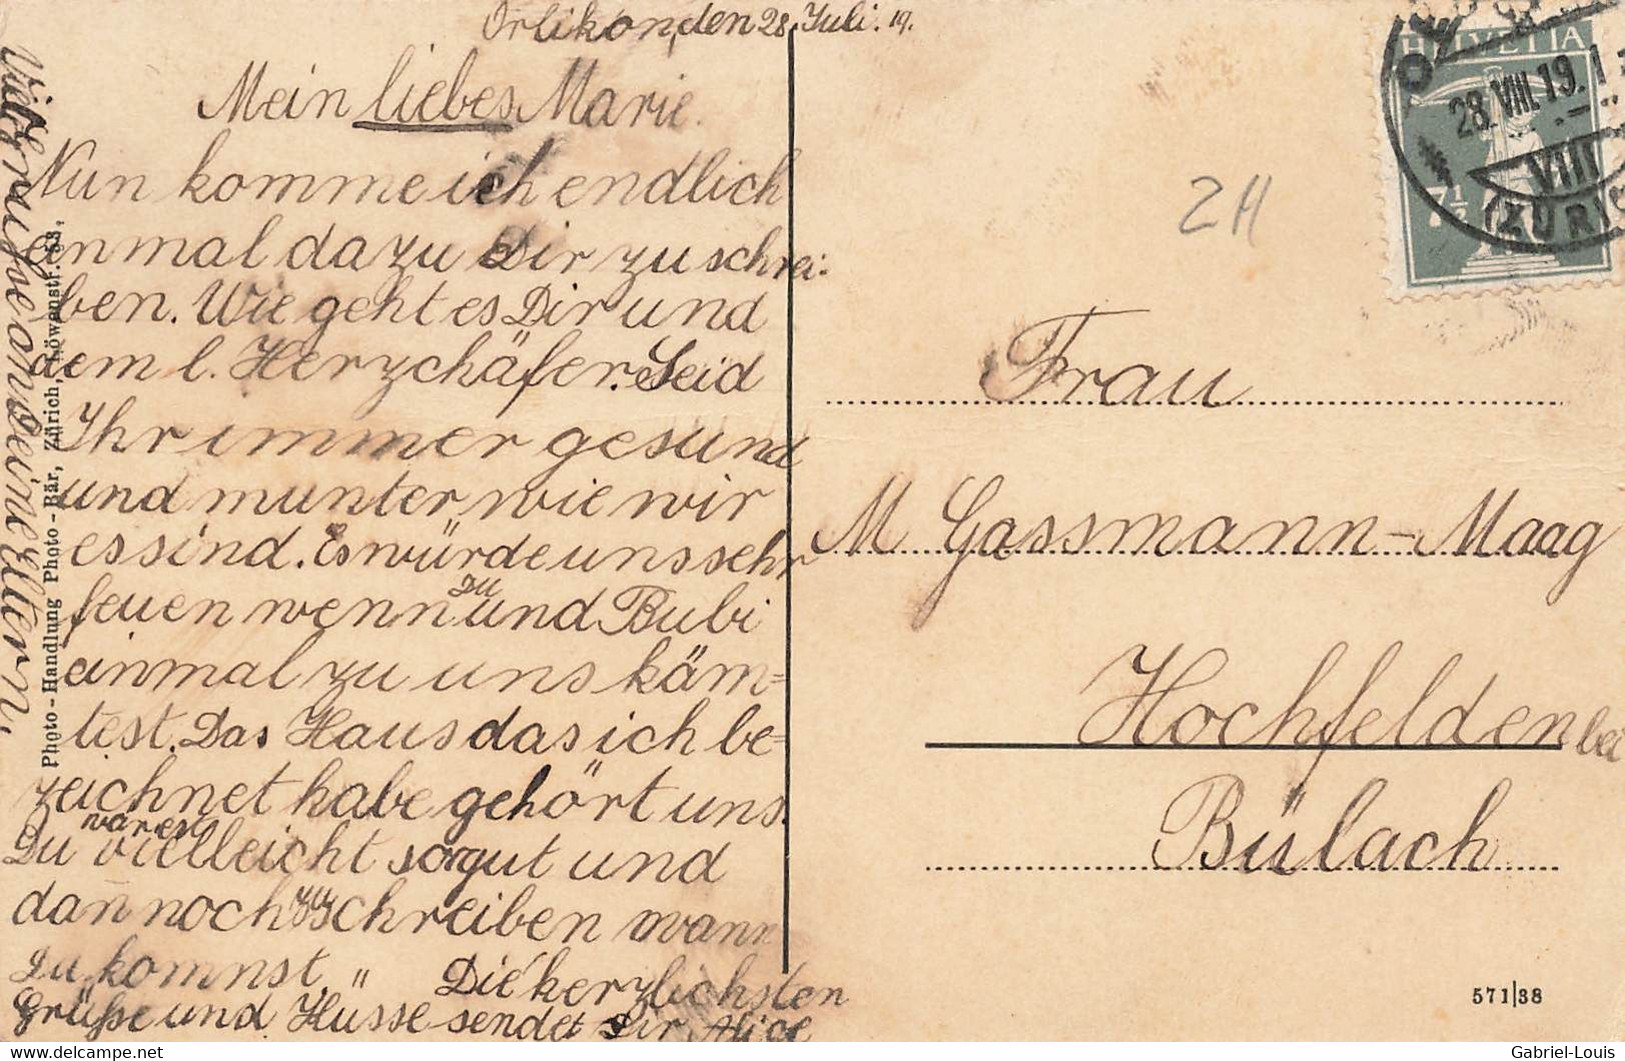 Örlikon, den 28. Juli. 19.
Mein liebes Marie.
Nun komme ich endlich
einmal dazu Dir zu schrei-
ben. Wie geht es Dir und
dem l. Herzchäfer. Seid
Ihr immer gesund
und munter wie wir
es sind. Es würde uns sehr
feuen wenn du und Bubi
einmal zu uns käm=
test. Das Haus das ich be=
zeichnet habe gehört uns.
Du wären vielleicht so gut und
dañ noch zu schreiben wann
Du komnst. „ Die herzlichsten
Grüsse und Küsse sendet Dir Alice
Viele Grüsse an Deine Eltern.
Photo-Handlung Photo-Bär, Zürich, Löwenstr. 53.
HELVETIA
7½
OE
28. VIII. 19. 1
VIII
(ZÜRICH
2H
Frau
M. Gassmann-Maag
Hochfelden bei
Bülach
571|38
Gabriel-Louis